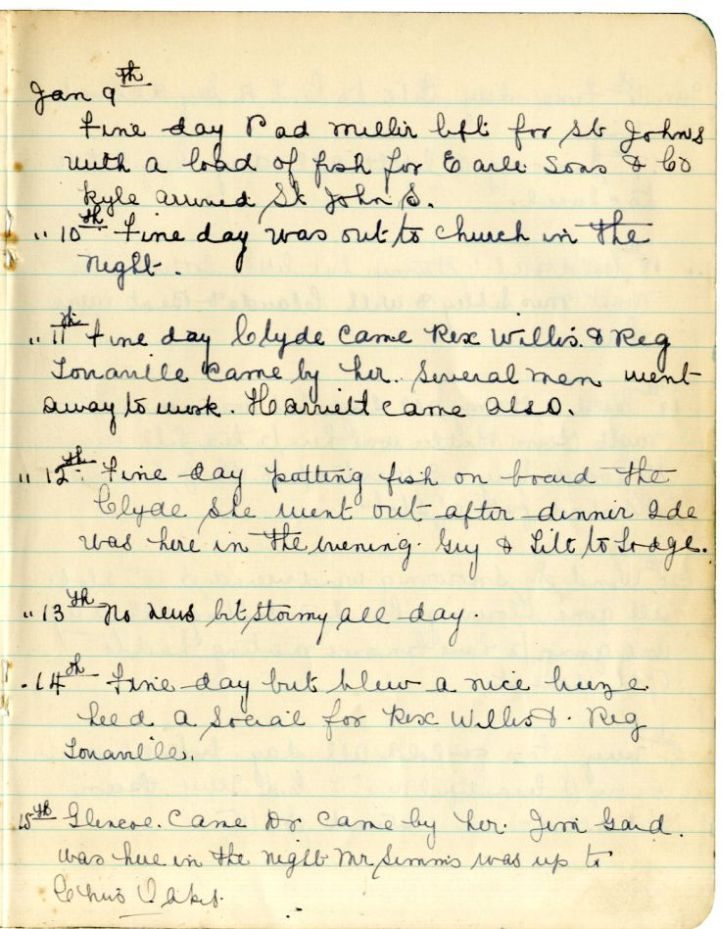 Jan 9th
Fine day Pad Miller left for St Johns
with a load of fish for Earle Sons & Co
Kyle arrived St John S.
" 10th Fine day was out to church in the
night.
" 11th Fine day Clyde came Rex Willis. & Reg
came by her. Several men went
away to work. Harriett came also.
" 12th. Fine day putting fish on board the
Clyde she went out after dinner Ide
was here in the evening. Guy & Lilt to Lodge.
" 13th No news bt stormy all day.
" 14th Fine day but blew a nice breeze
heed a Social for Rex Willis &. Reg
15th Glencoe. Came Dr came by her. Jim
was here in the night Mr Simms was up to